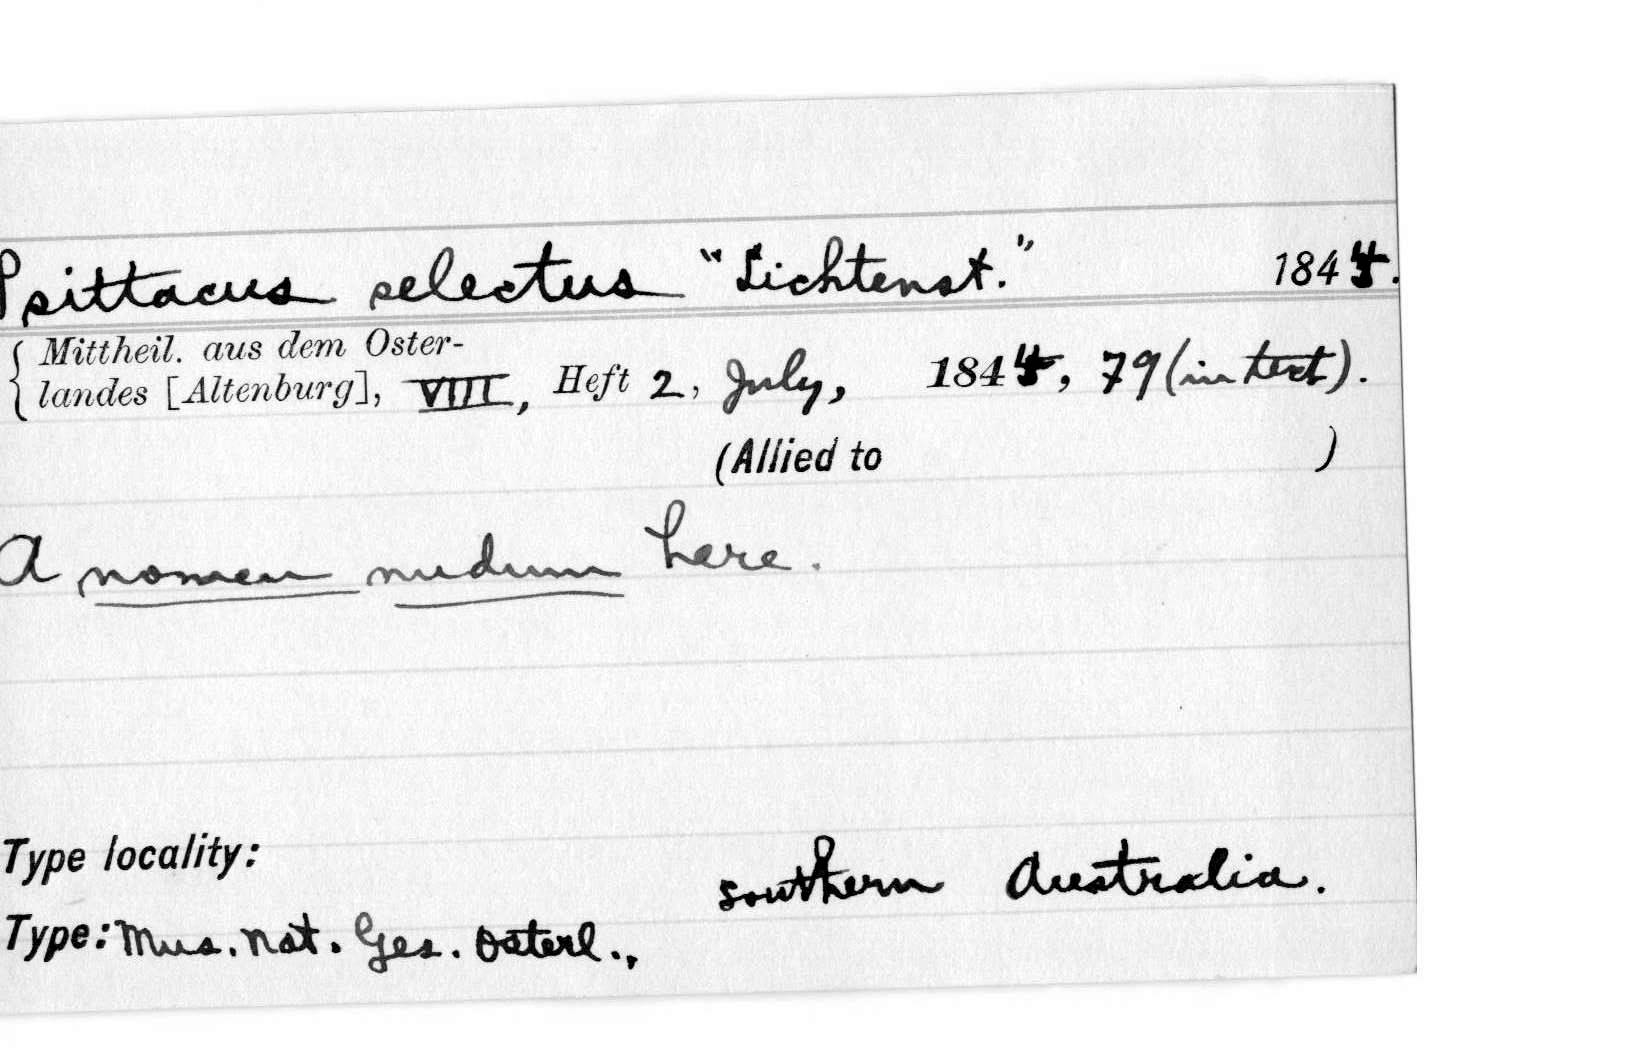 Psittacus selectus "Lichtenst." 1844.
Mittheil. aus dem Oster-
landes [Altenburg], VIII, Heft 2, July, 1844, 79 (in text).
(Allied to )
A nomen nudum here.
Type locality: southern Australia.
Type: Mus. Nat. Ges. Osterl.,